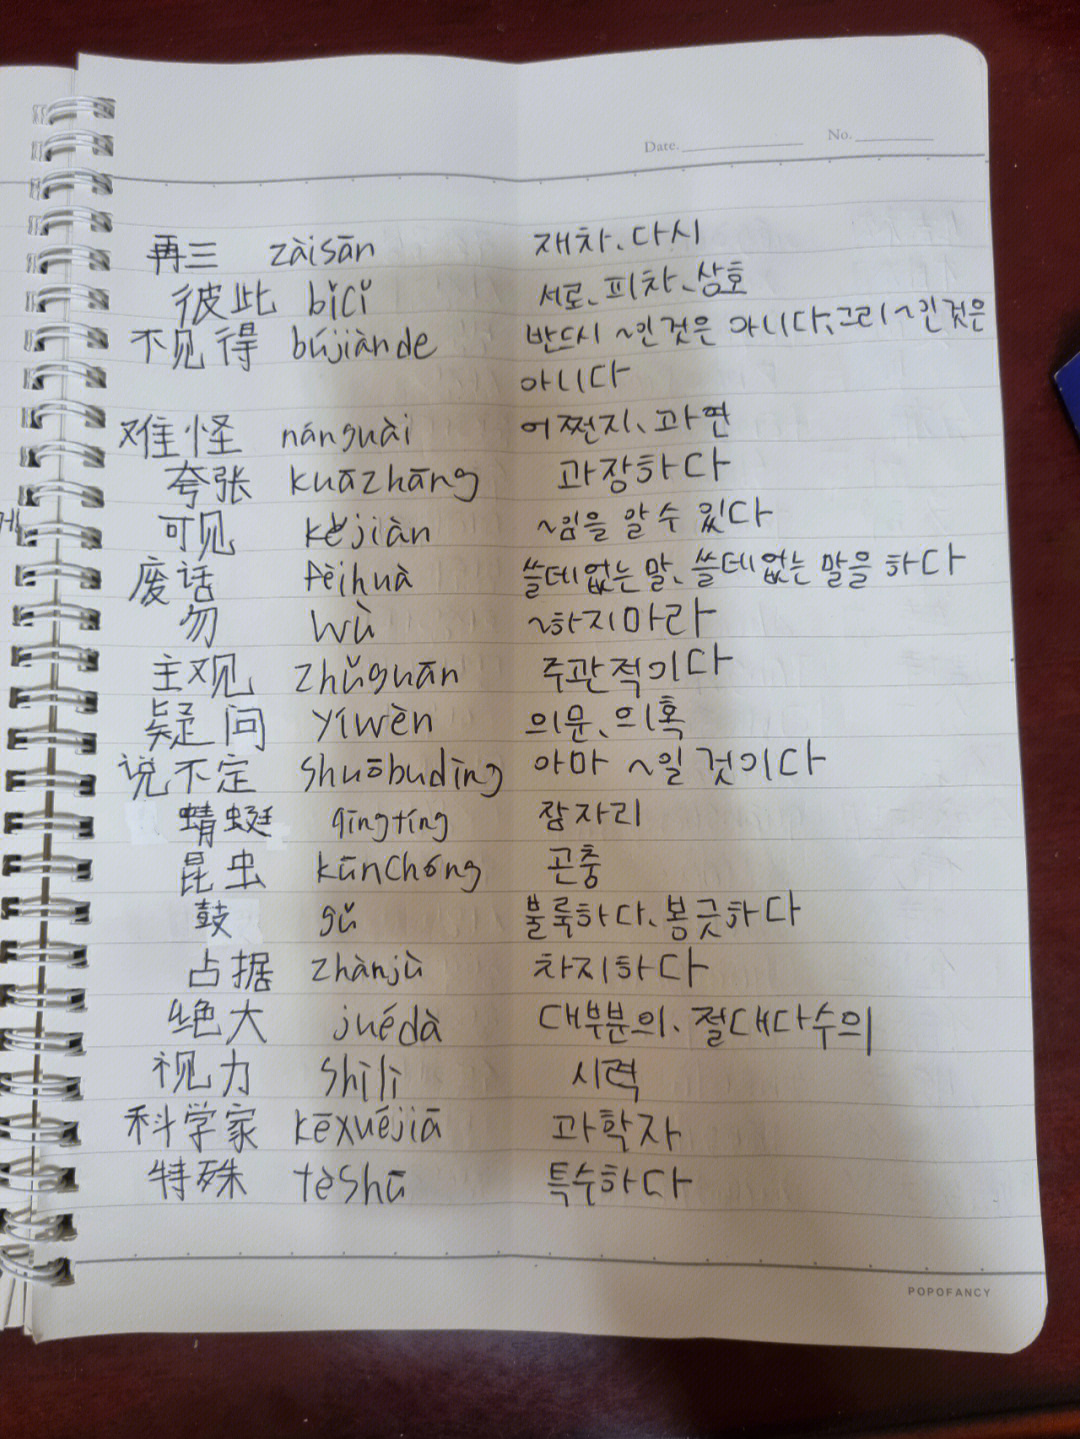 Date. No.
再三 zàisān 재차、다시
彼此 bǐcǐ 서로、피차、상호
不见得 bújiànde 반드시 ~인 것은 아니다、그리 ~인 것은
아니다
难怪 nánguài 어쩐지、과연
夸张 kuāzhāng 과장하다
可见 kějiàn ~임을 알 수 있다
废话 fèihuà 쓸데없는 말、쓸데없는 말을 하다
勿 wù ~하지마라
主观 zhǔguān 주관적이다
疑问 yíwèn 의문、의혹
说不定 shuōbudìng 아마 ~일 것이다
蜻蜓 qīngtíng 잠자리
昆虫 kūnchóng 곤충
鼓 gǔ 불룩하다、봉긋하다
占据 zhànjù 차지하다
绝大 juédà 대부분의、절대다수의
视力 shìlì 시력
科学家 kēxuéjiā 과학자
特殊 tèshū 특수하다
POPOFANCY